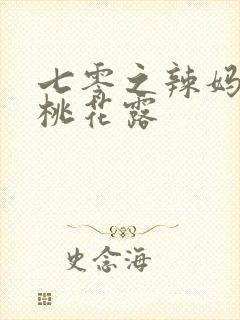 七零之辣妈
桃花露
史念海